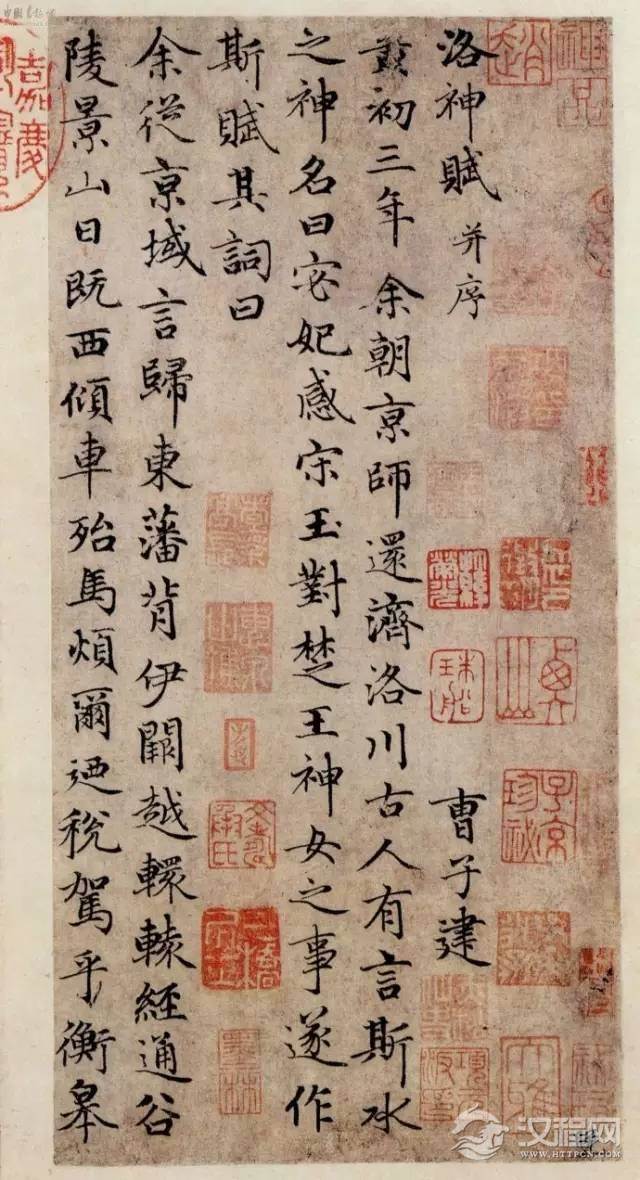 洛神賦 并序 曹子建
黄初三年余朝京師還濟洛川古人有言斯水
之神名曰宓妃感宋玉對楚王神女之事遂作
斯賦其詞曰
余從京域言歸東藩背伊闕越轘轅經通谷
陵景山日既西傾車殆馬煩爾迺稅駕乎蘅皋
嘉慶
子京
珍祕
墨林
汉程网
WWW.HTTPCN.COM